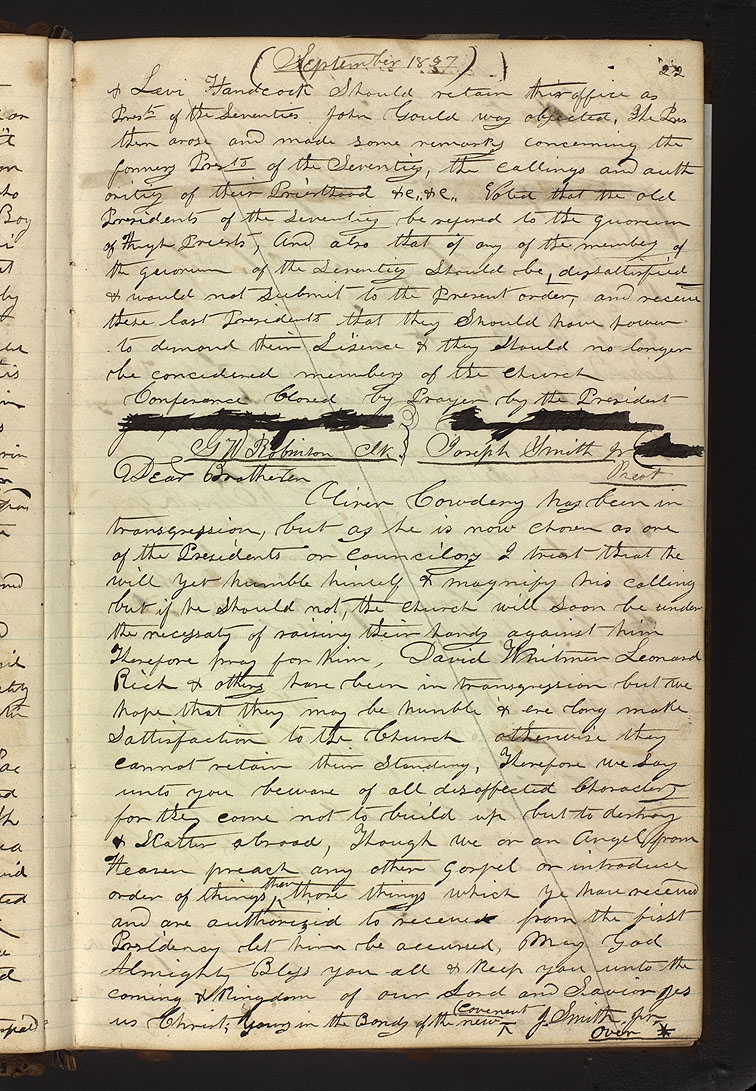 ( September 1837 ) ) 22
& Levi Handcock Should retain thir office as
Pres.ts of the Seventies John Gould was objected, The Pres
then arose and made some remarks concerning the
formers Pres.ts of the Seventies, the callings and auth
orities of their Priesthood &c,, &c,, Voted that the old
Presidents of the Seventies be refered to the quorum
of High Priests, And also that if any of the members of
the quorum of the Seventies Should be, dissatisfied
& would not Submit to the Present order, and receive
these last Presidents that they Should have power
to demand their Lisence & they Should no longer
be concidered members of the church
Conference Closed by Prayer by the President
G W Robinson Clk. Joseph Smith Jr
Prest
Dear Brotheren
Oliver Cowdery has been in
transgression, but as he is now chosen as one
of the Presidents or councilors I trust that he
will yet humble himself & magnify his calling
but if he should not, the church will soon be under
the necessaty of raising their hands against him
Therefore pray for him, David Whitmer Leonard
Rich & others have been in transgression but we
hope that they may be humble & ere long make
Sattisfaction to the Church otherwise they
cannot retain their Standing, Therefore we Say
unto you beware of all disaffected Characters
for they come not to build up but to destroy
& Scatter abroad, Though we or an Angel from
Heaven preach any other Gospel or introduce
order of things than those things which ye have received
and are authorized to received from the first
Presidency let him be accursed, May God
Almighty Bless you all & keep you unto the
coming & kingdom of our Lord and Savior Jes
us Christ; Yours in the Bonds of the new Covenent J. Smith Jr
Over *